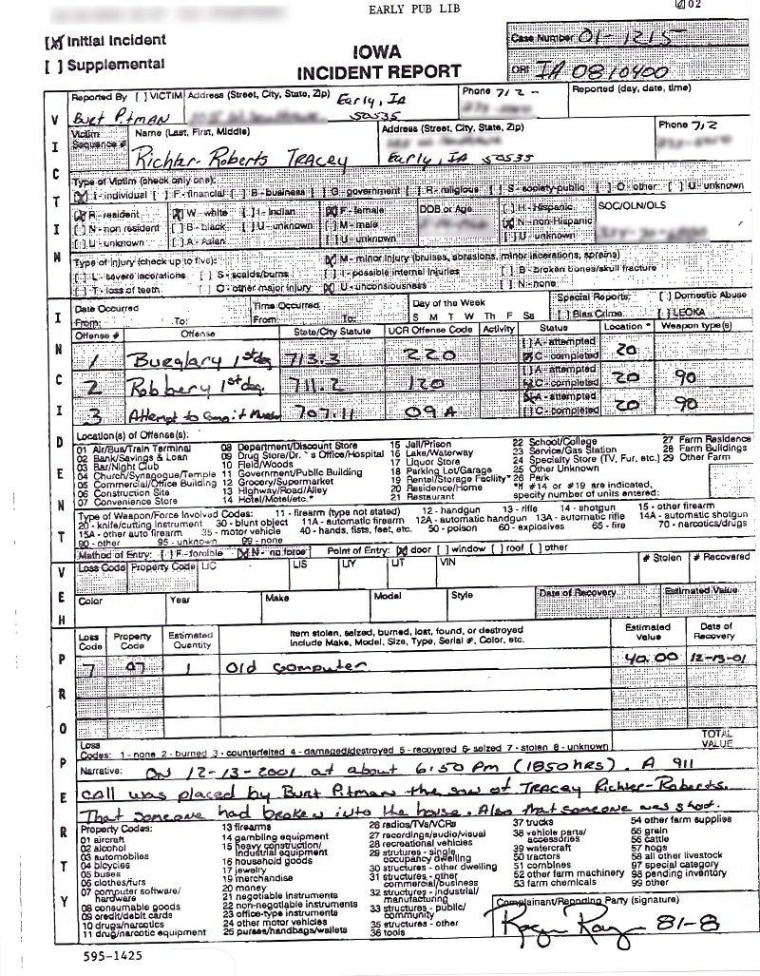 EARLY PUB LIB
02
[X] Initial Incident
[ ] Supplemental
IOWA
INCIDENT REPORT
Case Number 01-1215
ORI IA 0810400
Reported By [ ] VICTIM Address (Street, City, State, Zip) Early, IA 50535
Phone 712-
Reported (day, date, time)
Burt Pitman
Victim Sequence #
Name (Last, First, Middle)
Address (Street, City, State, Zip)
Phone 712
Richter-Roberts TRACEY
Early, IA 50535
Type of Victim (check only one):
[X] I - individual [ ] F - financial [ ] B - business [ ] G - government [ ] R - religious [ ] S - society-public [ ] O - other [ ] U - unknown
[X] R - resident
[ ] N - non resident
[ ] U - unknown
[X] W - white
[ ] B - black
[ ] A - Asian
[ ] I - Indian
[ ] U - unknown
[X] F - female
[ ] M - male
[ ] U - unknown
DOB or Age
[ ] H - Hispanic
[X] N - non-Hispanic
[ ] U - unknown
SOC/OLN/OLS
Type of Injury (check up to five):
[X] M - minor injury (bruises, abrasions, minor lacerations, sprains)
[ ] L - severe lacerations [ ] S - scalds/burns [ ] I - possible internal injuries [ ] B - broken bones/skull fracture
[ ] T - loss of teeth [ ] O - other major injury [X] U - unconsiousness [ ] N - none
Date Occurred
From: To:
Time Occurred
From: To:
Day of the Week
S M T W Th F Sa
Special Reports: [ ] Domestic Abuse
[ ] Bias Crime [ ] LEOKA
Offense # Offense State/City Statute UCR Offense Code Activity Status Location * Weapon type(s)
1 Burglary 1st dg. 713.3 220 [ ] A - attempted [X] C - completed 20
2 Robbery 1st dg. 711.2 120 [ ] A - attempted [X] C - completed 20 90
3 Attempt to Commit Murder 707.11 09A [X] A - attempted [ ] C - completed 20 90
Location(s) of Offense(s):
01 Air/Bus/Train Terminal
02 Bank/Savings & Loan
03 Bar/Night Club
04 Church/Synagogue/Temple
05 Commercial/Office Building
06 Construction Site
07 Convenience Store
08 Department/Discount Store
09 Drug Store/Dr.`s Office/Hospital
10 Field/Woods
11 Government/Public Building
12 Grocery/Supermarket
13 Highway/Road/Alley
14 Hotel/Motel/etc.*
15 Jail/Prison
16 Lake/Waterway
17 Liquor Store
18 Parking Lot/Garage
19 Rental/Storage Facility*
20 Residence/Home
21 Restaurant
22 School/College
23 Service/Gas Station
24 Specialty Store (TV, Fur, etc.)
25 Other Unknown
26 Park
27 Farm Residence
28 Farm Buildings
29 Other Farm
*If #14 or #19 are indicated,
specify number of units entered:
Type of Weapon/Force Involved Codes: 11 - firearm (type not stated) 12 - handgun 13 - rifle 14 - shotgun 15 - other firearm
20 - knife/cutting instrument 30 - blunt object 11A - automatic firearm 12A - automatic handgun 13A - automatic rifle 14A - automatic shotgun
15A - other auto firearm 35 - motor vehicle 40 - hands, fists, feet, etc. 50 - poison 60 - explosives 65 - fire 70 - narcotics/drugs
90 - other 95 - unknown 99 - none
Method of Entry: [ ] F - forcible [X] N - no force Point of Entry: [X] door [ ] window [ ] roof [ ] other
Loss Code Property Code LIC LIS LIY LIT VIN # Stolen # Recovered
Color Year Make Model Style Date of Recovery Estimated Value
Loss Code Property Code Estimated Quantity
Item stolen, seized, burned, lost, found, or destroyed
Include Make, Model, Size, Type, Serial #, Color, etc.
Estimated Value Date of Recovery
7 07 1 Old Computer 40.00 12-13-01
TOTAL VALUE
Loss
Codes: 1 - none 2 - burned 3 - counterfeited 4 - damaged/destroyed 5 - recovered 6 - seized 7 - stolen 8 - unknown
Narrative: ON 12-13-2001 at about 6:50 PM (1850 hrs). A 911
call was placed by Burt Pitman the son of TRACEY Richter-Roberts.
That someone had broken into the house. Also that someone was shot.
Property Codes:
01 aircraft
02 alcohol
03 automobiles
04 bicycles
05 buses
06 clothes/furs
07 computer software/
hardware
08 consumable goods
09 credit/debit cards
10 drugs/narcotics
11 drug/narcotic equipment
13 firearms
14 gambling equipment
15 heavy construction/
industrial equipment
16 household goods
17 jewelry
19 merchandise
20 money
21 negotiable instruments
22 non-negotiable instruments
23 office-type instruments
24 other motor vehicles
25 purses/handbags/wallets
26 radios/TVs/VCRs
27 recordings/audio/visual
28 recreational vehicles
29 strutures - single
occupancy dwelling
30 structures - other dwelling
31 structures - other
commercial/business
32 structures - industrial/
manufacturing
33 structures - public/
community
35 structures - other
36 tools
37 trucks
38 vehicle parts/
accessories
39 watercraft
50 tractors
51 combines
52 other farm machinery
53 farm chemicals
54 other farm supplies
55 grain
56 cattle
57 hogs
58 all other livestock
97 special category
98 pending inventory
99 other
Complainant/Reporting Party (signature)
81-8
595-1425
VICTIM
INCIDENT
VEH
PROPERTY